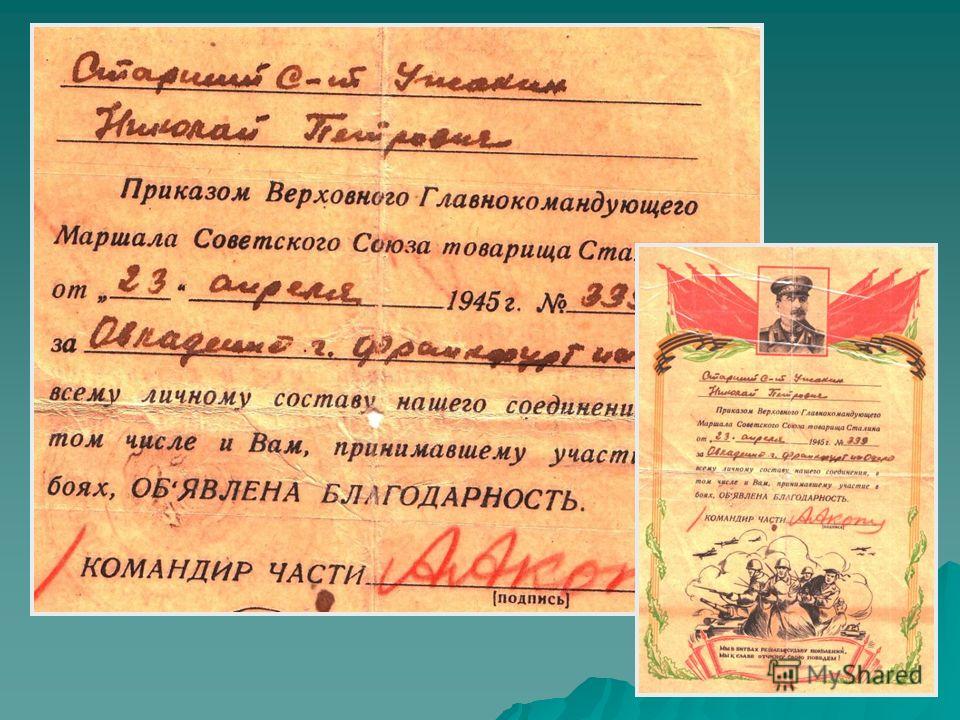 Старший С-т Ушакин
Николай Петрович
Приказом Верховного Главнокомандующего
Маршала Советского Союза товарища Ста
от „23“ апреля 1945 г. № 339
за Овладение г. Франкфурт на
всему личному составу нашего соединени
том числе и Вам, принимавшему участи
боях, ОБ‘ЯВЛЕНА БЛАГОДАРНОСТЬ.
КОМАНДИР ЧАСТИ
[подпись]
Старший С-т Ушакин
Николай Петрович
Приказом Верховного Главнокомандующего
Маршала Советского Союза товарища Сталина
от „23“ апреля 1945 г. № 339
за Овладение г. Франкфурт на Одере
всему личному составу нашего соединения, в
том числе и Вам, принимавшему участие в
боях, ОБ‘ЯВЛЕНА БЛАГОДАРНОСТЬ.
КОМАНДИР ЧАСТИ
[подпись]
Мы в битвах решаем судьбу поколений,
Мы к славе отчизну свою поведем!
MyShared